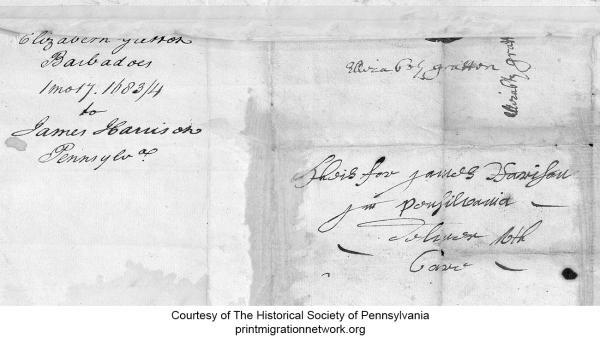 Elizabeth gretton
Barbadoes
1 mo 17. 1683/4
to
James Harrison
Pennsylva
Elizabeth gretton
Elizabeth grett
theis for james Harison
jn pensilvania
Deliver with
Care
Courtesy of The Historical Society of Pennsylvania
printmigrationnetwork.org